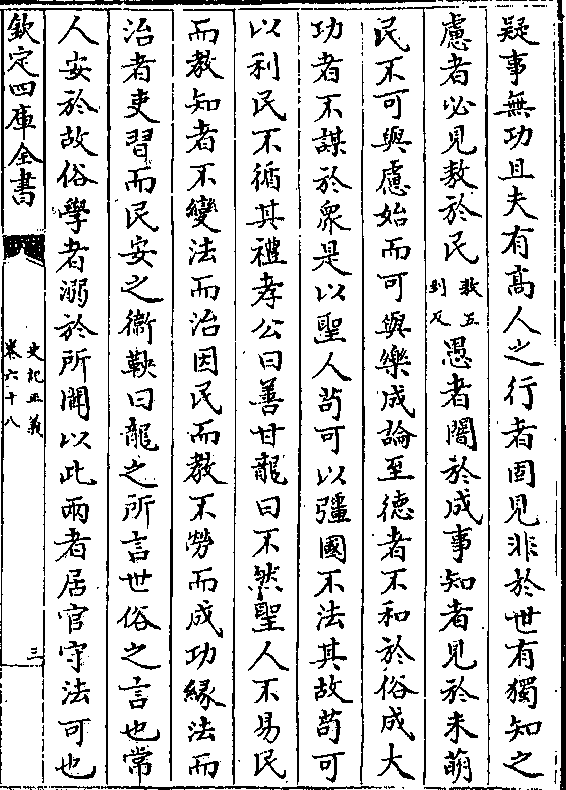 疑事無功且夫有髙人之行者固見非於世有獨知之
慮者必見敖於民敖五到反愚者闇於成事知者見於未萌
民不可與慮始而可與樂成論至德者不和於俗成大
功者不謀於衆是以聖人苟可以彊國不法其故苟可
以利民不循其禮孝公曰善甘龍曰不然聖人不易民
而教知者不變法而治因民而教不勞而成功緣法而
治者吏習而民安之衞鞅曰龍之所言世俗之言也常
人安於故俗學者溺於所聞以此兩者居官守法可也
欽定四庫全書
史記正義
卷六十八
三